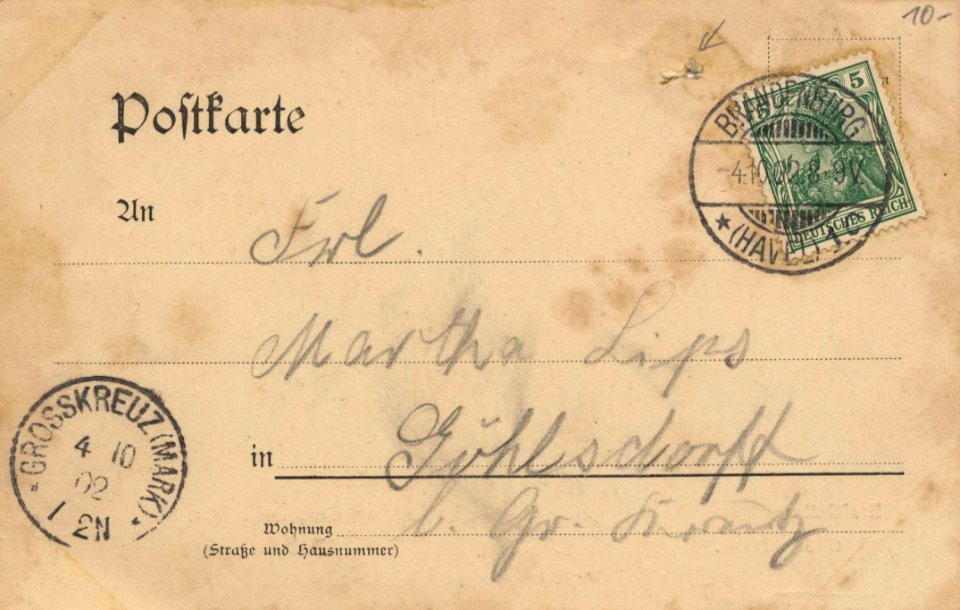 10.-
Postkarte
5
BRANDENBURG
-4.10.02.8-9V.
* (HAVEL) 1
DEUTSCHES REICH
An
Frl.
Martha Lips
in Göhlsdorff
b. Gr. Kreutz
GROSSKREUZ (MARK)
4 10
02
1 2N
Wohnung
(Straße und Hausnummer)